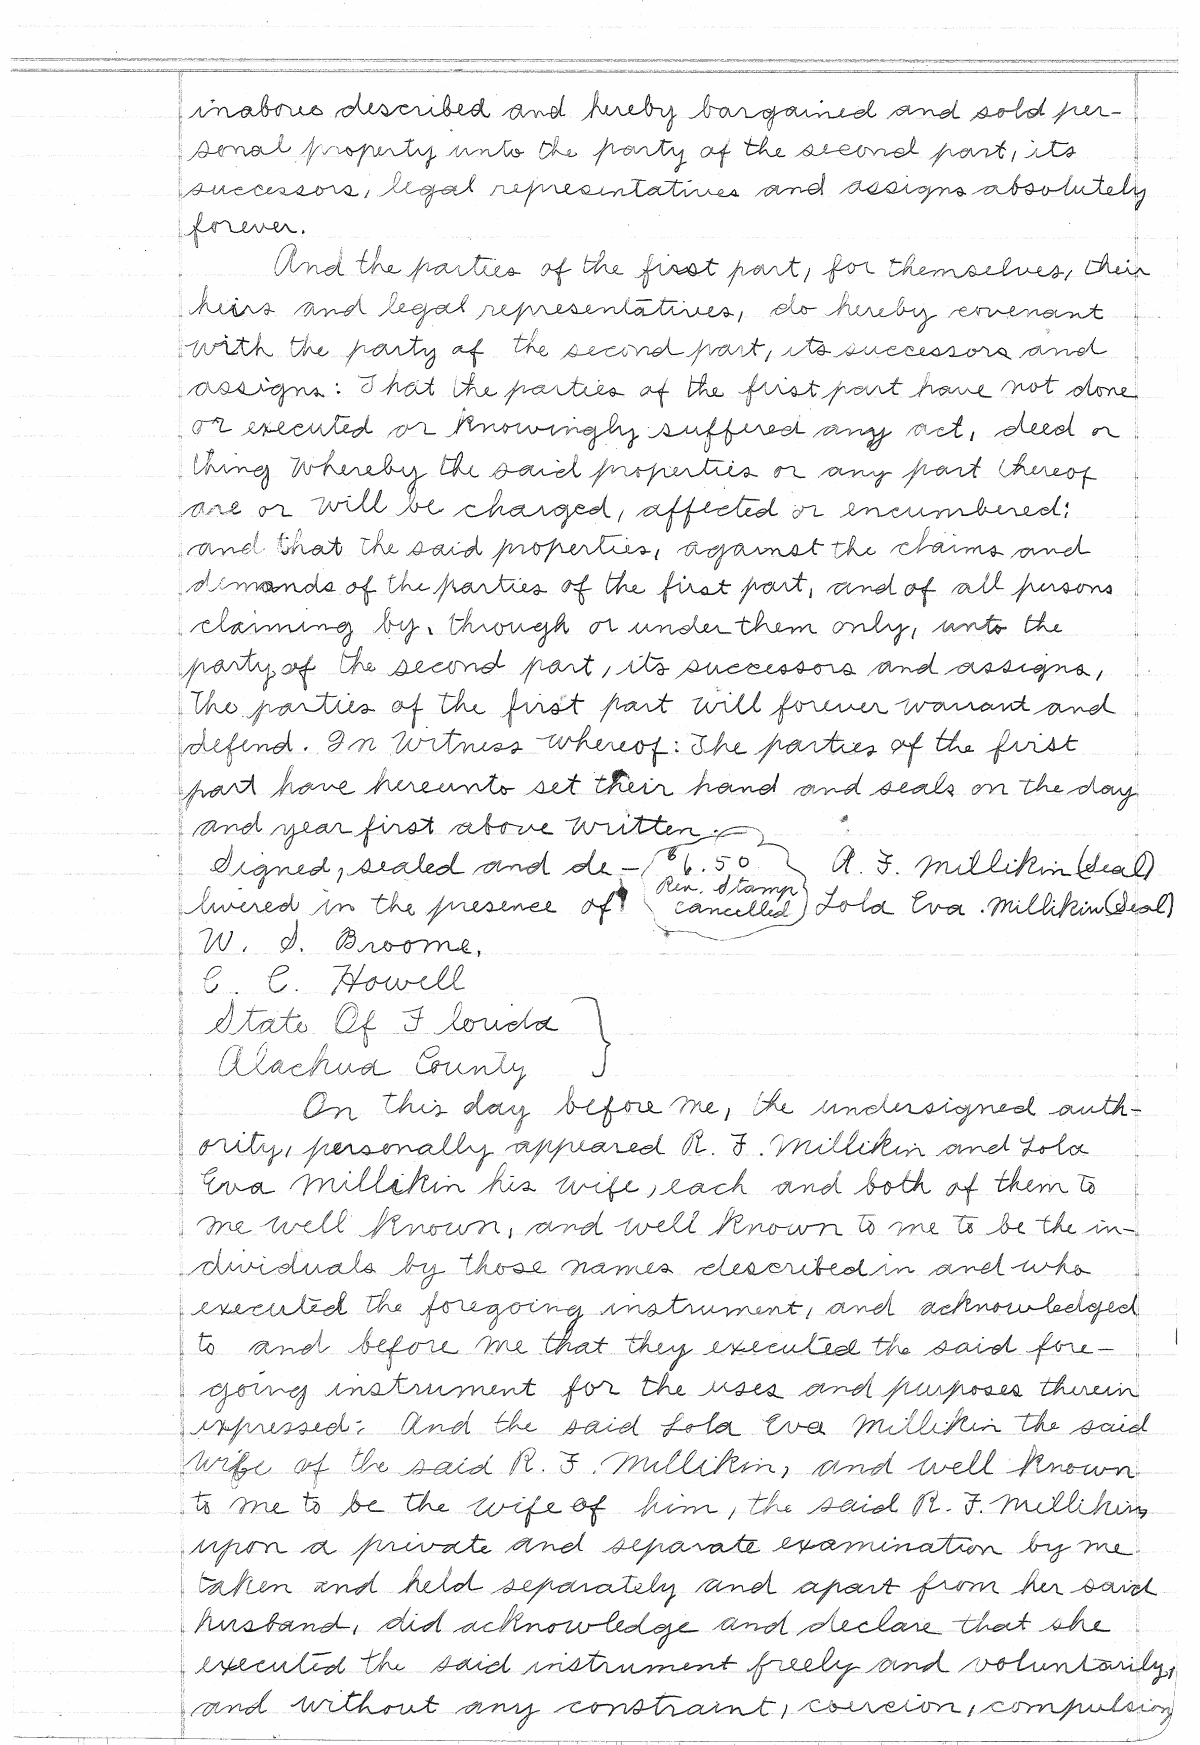 inabove described and hereby bargained and sold per-
sonal property unto the party of the second part, its
successors, legal representatives and assigns absolutely
forever.
And the parties of the first part, for themselves, their
heirs and legal representatives, do hereby covenant
with the party of the second part, its successors and
assigns: That the parties of the first part have not done
or executed or knowingly suffered any act, deed or
thing whereby the said properties or any part thereof
are or will be charged, affected or encumbered;
and that the said properties, against the claims and
demands of the parties of the first part, and of all persons
claiming by, through or under them only, unto the
party of the second part, its successors and assigns,
the parties of the first part will forever warrant and
defend. In Witness whereof: The parties of the first
part have hereunto set their hand and seals on the day
and year first above written.
Signed, sealed and de- $6.50 R. F. Millikin (Seal)
livered in the presence of Rev. Stamp cancelled Lola Eva Millikin (Seal)
W. S. Broome,
C. C. Howell
State Of Florida
Alachua County
On this day before me, the undersigned auth-
ority, personally appeared R. F. Millikin and Lola
Eva Millikin his wife, each and both of them to
me well known, and well known to me to be the in-
dividuals by those names described in and who
executed the foregoing instrument, and acknowledged
to and before me that they executed the said fore-
going instrument for the uses and purposes therein
expressed; And the said Lola Eva Millikin the said
wife of the said R. F. Millikin, and well known
to me to be the wife of him, the said R. F. Millikin,
upon a private and separate examination by me
taken and held separately and apart from her said
husband, did acknowledge and declare that she
executed the said instrument freely and voluntarily,
and without any constraint, coercion, compulsion